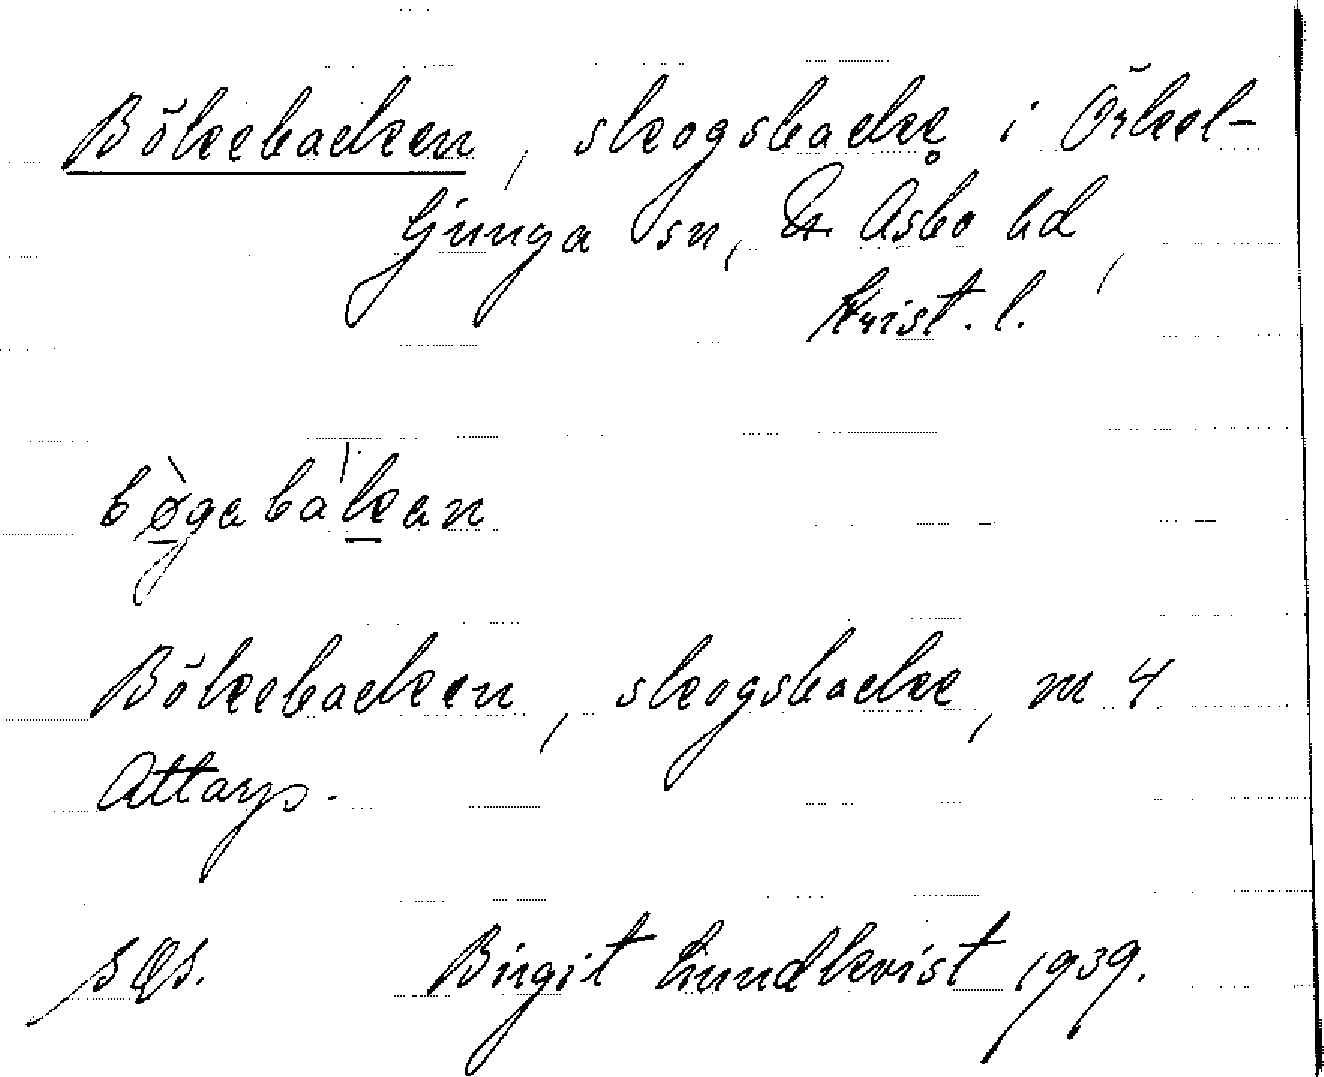 Bökebacken, skogsbacke i Örkel-
ljunga sn, N. Åsbo hd,
Krist. l.
bøgabakan
Bökebacken, skogsbacke, m 4
Attarp.
Birgit Lundkvist 1939.